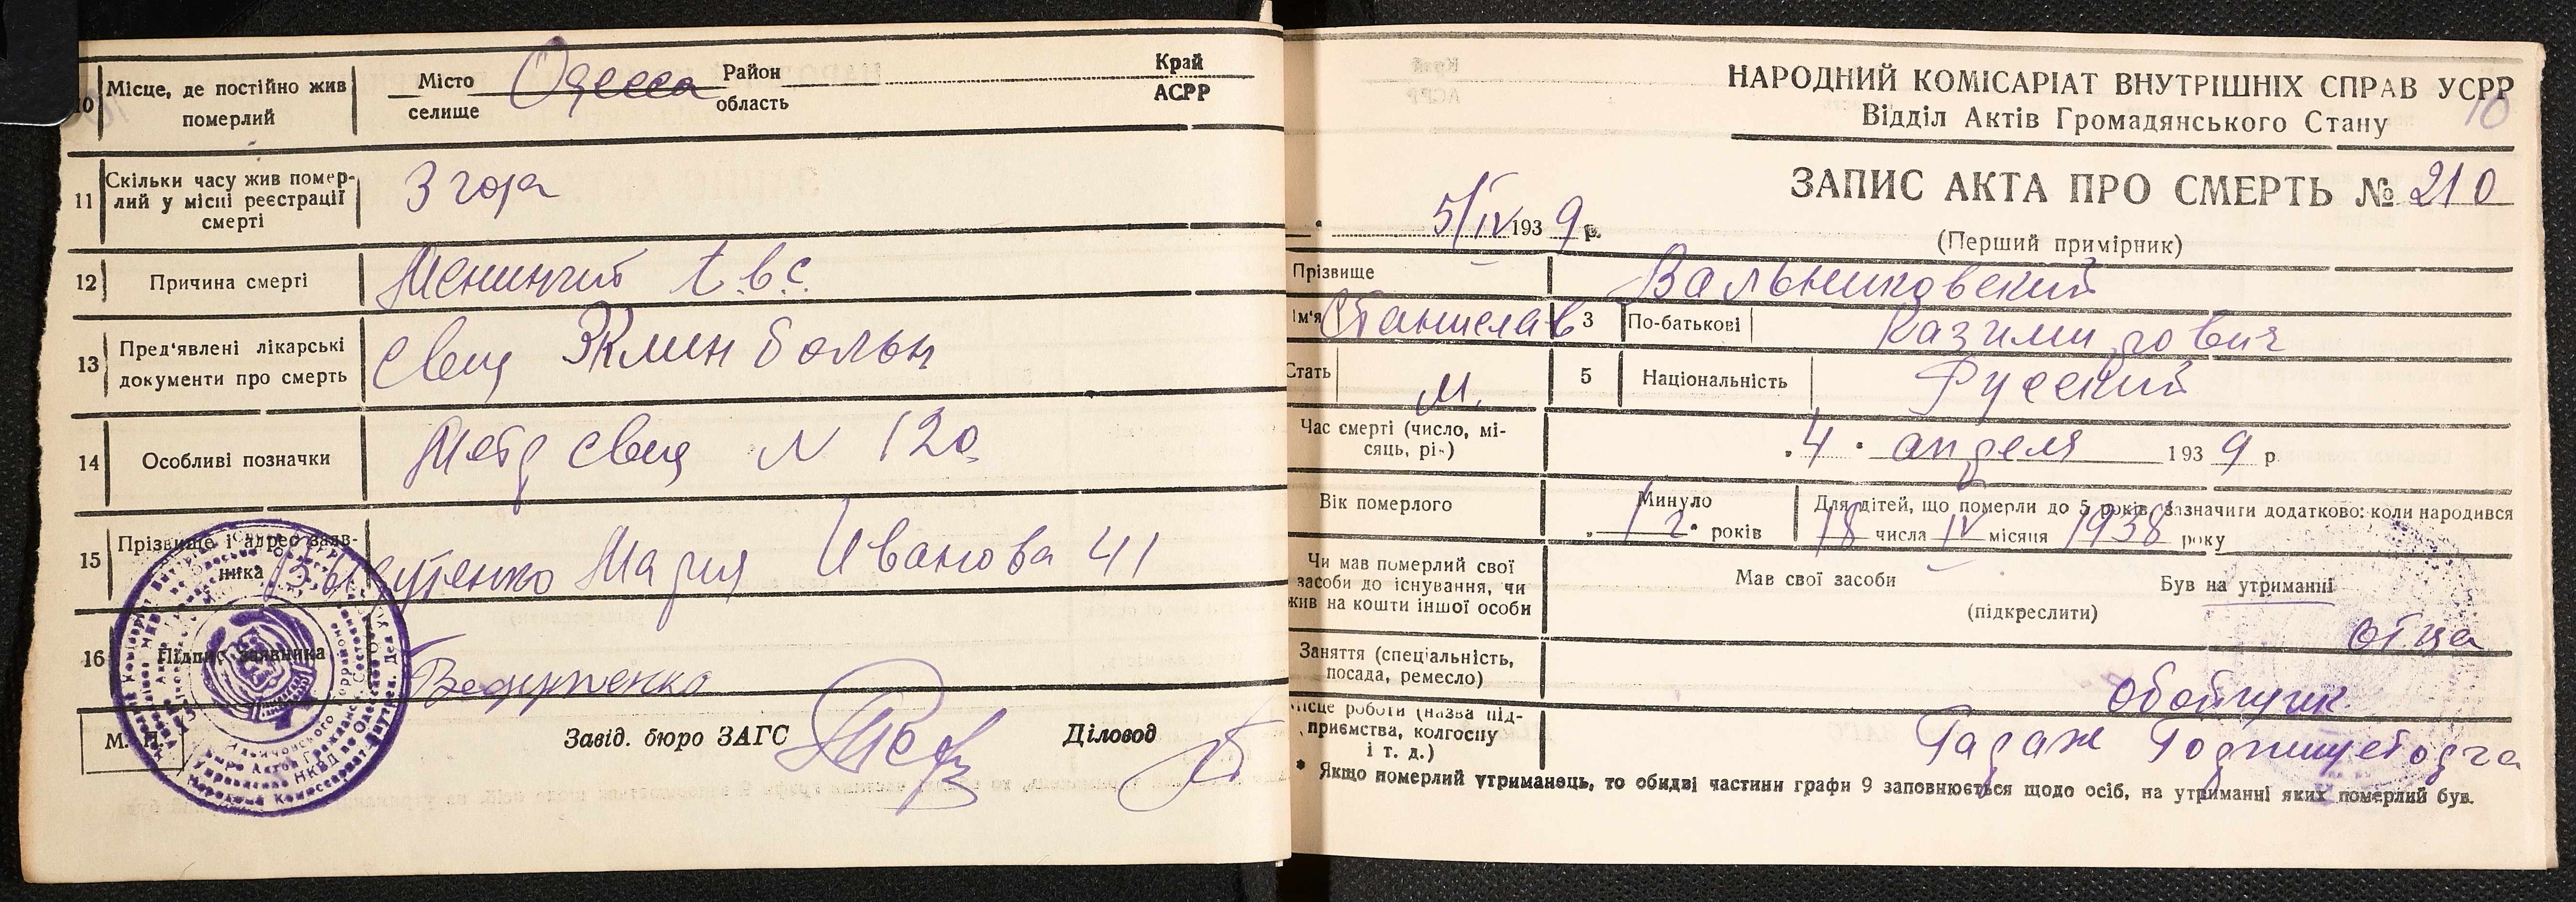 10 Місце, де постійно жив померлий
Місто селище Одесса Район область Край АСРР
11 Скільки часу жив померлий у місці реєстрації смерті
3 года
12 Причина смерті
Менингит t.b.c.
13 Пред'явлені лікарські документи про смерть
Свид 3 Клин больн
14 Особливі позначки
Метр свид N 120
15 Прізвище і адрес заявника
Мария Иванова 41
16 Підпис заявника
М. П.
Завід. бюро ЗАГС
Діловод
НАРОДНИЙ КОМІСАРІАТ ВНУТРІШНІХ СПРАВ УСРР
10
Відділ Актів Громадянського Стану
ЗАПИС АКТА ПРО СМЕРТЬ № 210
5/IV 1939 р.
(Перший примірник)
Прізвище
Вальниковский
Ім'я Станислав 3 По-батькові Казимирович
Стать М. 5 Національність Русский
Час смерті (число, місяць, рік)
4 апреля 1939 р.
Вік померлого
Минуло 1 г. років
Для дітей, що померли до 5 років, зазначити додатково: коли народився
18 числа IV місяця 1938 року
Чи мав померлий свої засоби до існування, чи жив на кошти іншої особи
Мав свої засоби
Був на утриманні
(підкреслити)
отца
Заняття (спеціальність, посада, ремесло)
обойщик
Місце роботи (назва підприємства, колгоспу і т. д.)
Гараж
* Якщо померлий утриманець, то обидві частини графи 9 заповнюється щодо осіб, на утриманні яких померлий був.